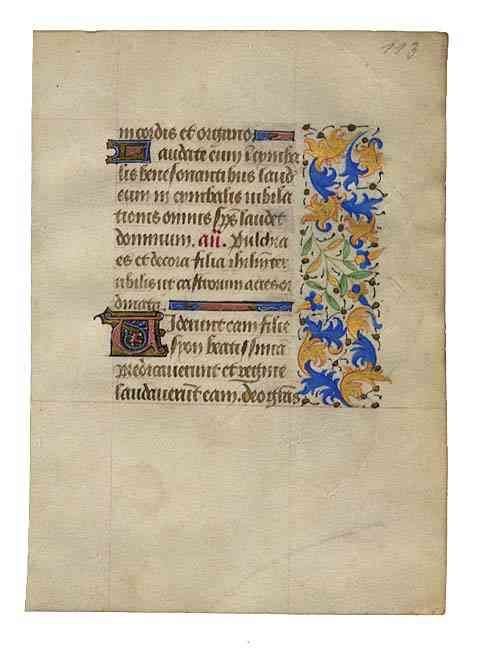 113
in cordis et organo
Laudate eum ī cymba
lis bene sonantibus laud
eum in cymbalis iubila
tionis omnis sp̄s laudet
dominum. añ. Pulchra
es et decora filia iħrlm̄ ter
ribilis ut castrorum acies or
dinata.
Viderunt eam filie
syon beatissimā
predicauerunt et regine
laudauerūt eam. deo gr̄as